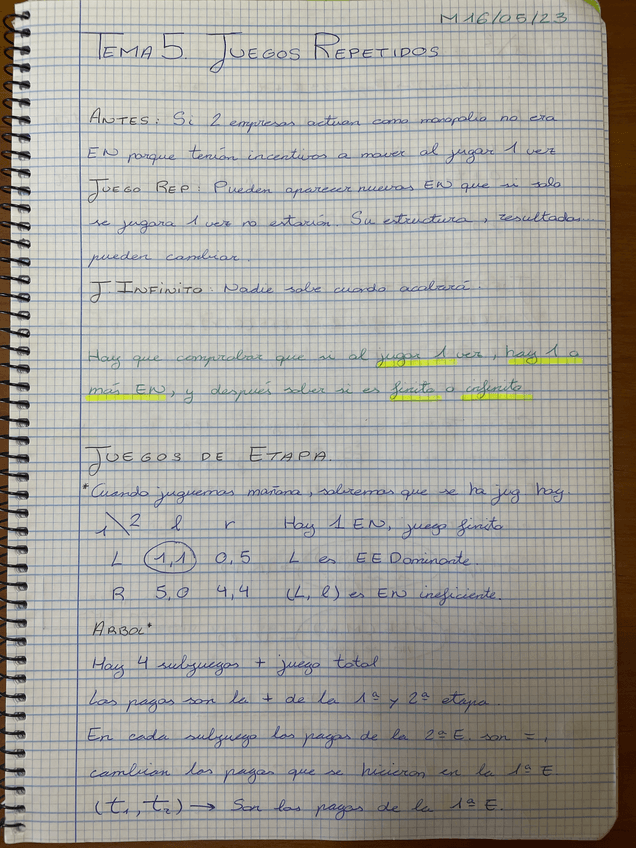 M 16/05/23
TEMA 5. JUEGOS REPETIDOS
ANTES: Si 2 empresas actúan como monopolio no era
EN porque tenían incentivos a mover al jugar 1 vez
JUEGO REP: Pueden aparecer nuevas EN que si solo
se jugara 1 vez no estarían. Su estructura, resultados...
pueden cambiar.
J. INFINITO: Nadie sabe cuando acabará.
Hay que comprobar que si al jugar 1 vez, hay 1 o
más EN, y después saber si es finito o infinito
JUEGOS DE ETAPA.
*Cuando juguemos mañana, sabremos que se ha jug hoy.
1\2 l r Hay 1 EN, juego finito
L 1,1 0,5 L es EE Dominante.
R 5,0 4,4 (L, l) es EN ineficiente.
ARBOL*
Hay 4 subjuegos + juego total
Los pagos son la + de la 1ª y 2ª etapa.
En cada subjuego los pagos de la 2ª E. son =,
cambian los pagos que se hicieron en la 1ª E
(t₁, t₂) → Son los pagos de la 1ª E.